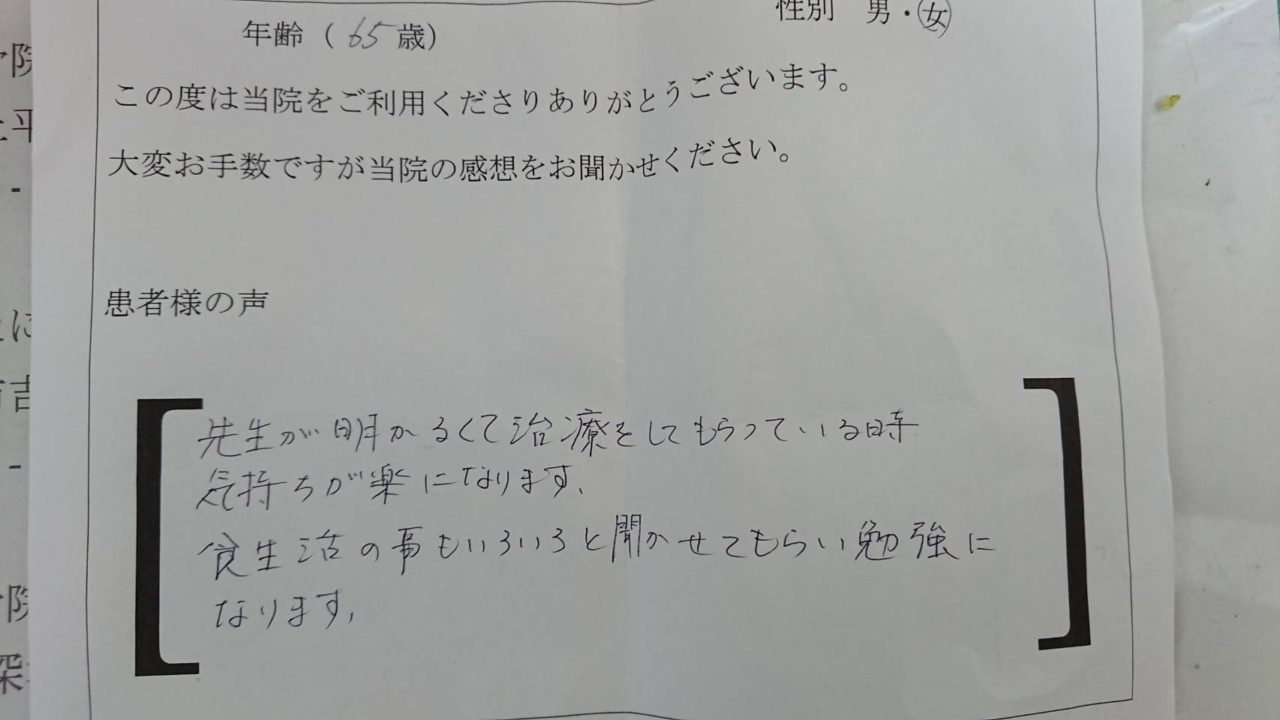 年齢（ 65 歳）
性別 男・女
この度は当院をご利用くださりありがとうございます。
大変お手数ですが当院の感想をお聞かせください。
患者様の声
先生が明かるくて治療をしてもらっている時
気持ちが楽になります、
食生活の事もいろいろと聞かせてもらい勉強に
なります、